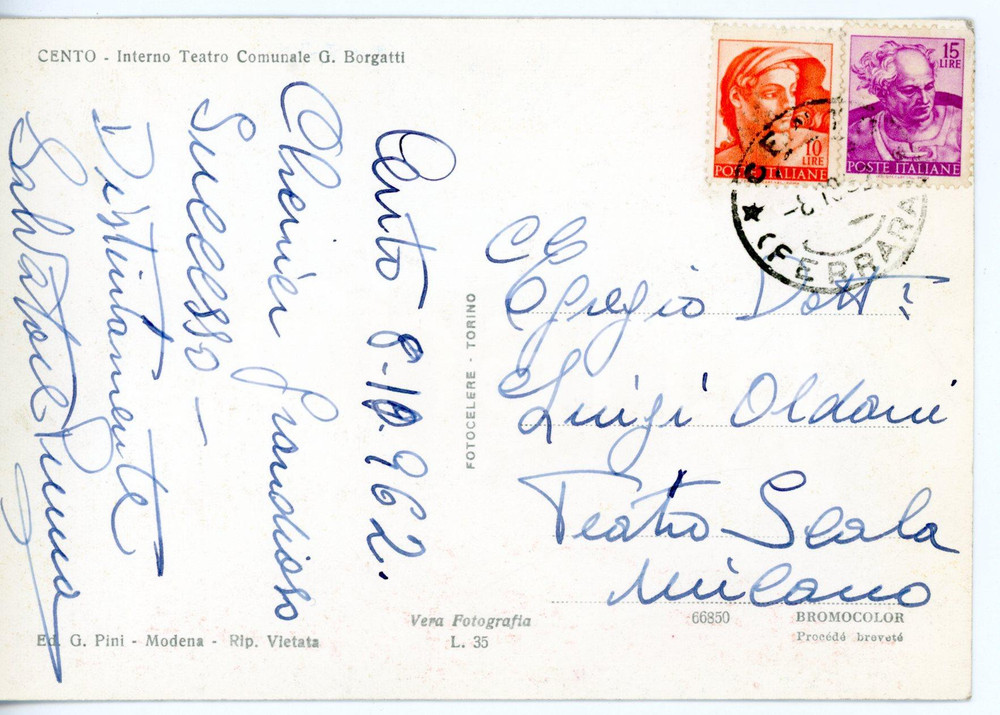 CENTO - Interno Teatro Comunale G. Borgatti
Cento 8-10.962.
Chenier grandioso
Successo -
Distintamente
Salvatore Puma
FOTOCELERE - TORINO
10
LIRE
POSTE ITALIANE
15
LIRE
POSTE ITALIANE
(FERRARA)
Egregio Dott:
Luigi Oldani
Teatro Scala
Milano
Ed. G. Pini - Modena - Rip. Vietata
Vera Fotografia
L. 35
66850
BROMOCOLOR
Procédé breveté